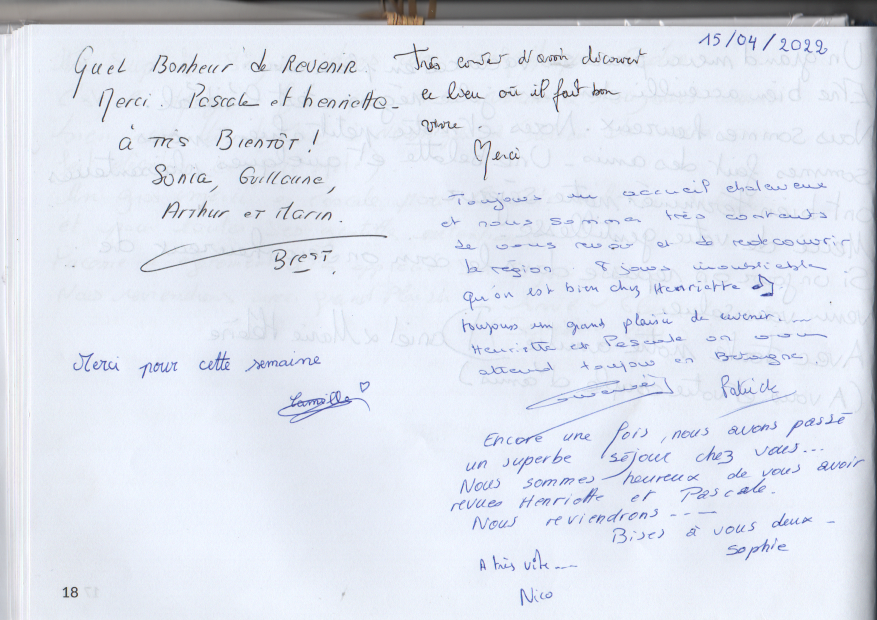 Quel Bonheur de Revenir.
Merci. Pascale et henriette.
à très Bientôt !
Sonia, Guillaume,
Arthur et Marin.
Brest.
Merci pour cette semaine
Camille
18
15/04/2022
Très content d'avoir découvert
ce lieu où il fait bon
vivre.
Merci
Toujours un accueil chaleureux
et nous sommes très contents
de vous revoir et de redécouvrir
la région 8 jours inoubliable
qu'on est bien chez Henriette
toujours un grand plaisir de venir....
Henriette et Pascale on vous
attend toujour en Bretagne
Patrick
Encore une fois, nous avons passé
un superbe séjour chez vous...
Nous sommes heureux de vous avoir
revues Henriette et Pascale.
Nous reviendrons ----
Bises à vous deux -
Sophie
A très vite...
Nico